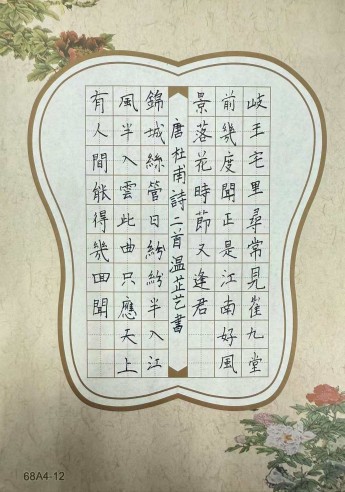 岐王宅里尋常見崔九堂
前幾度聞正是江南好風
景落花時節又逢君
唐杜甫詩二首温芷艺書
錦城絲管日紛紛半入江
風半入雲此曲只應天上
有人間能得幾回聞
68A4-12